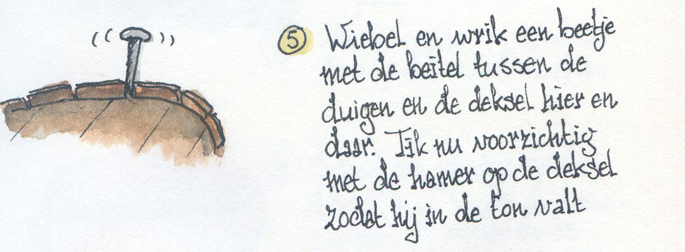 5 Wiebel en wrik een beetje
met de beitel tussen de
duigen en de deksel hier en
daar. Tik nu voorzichtig
met de hamer op de deksel
zodat hij in de ton valt